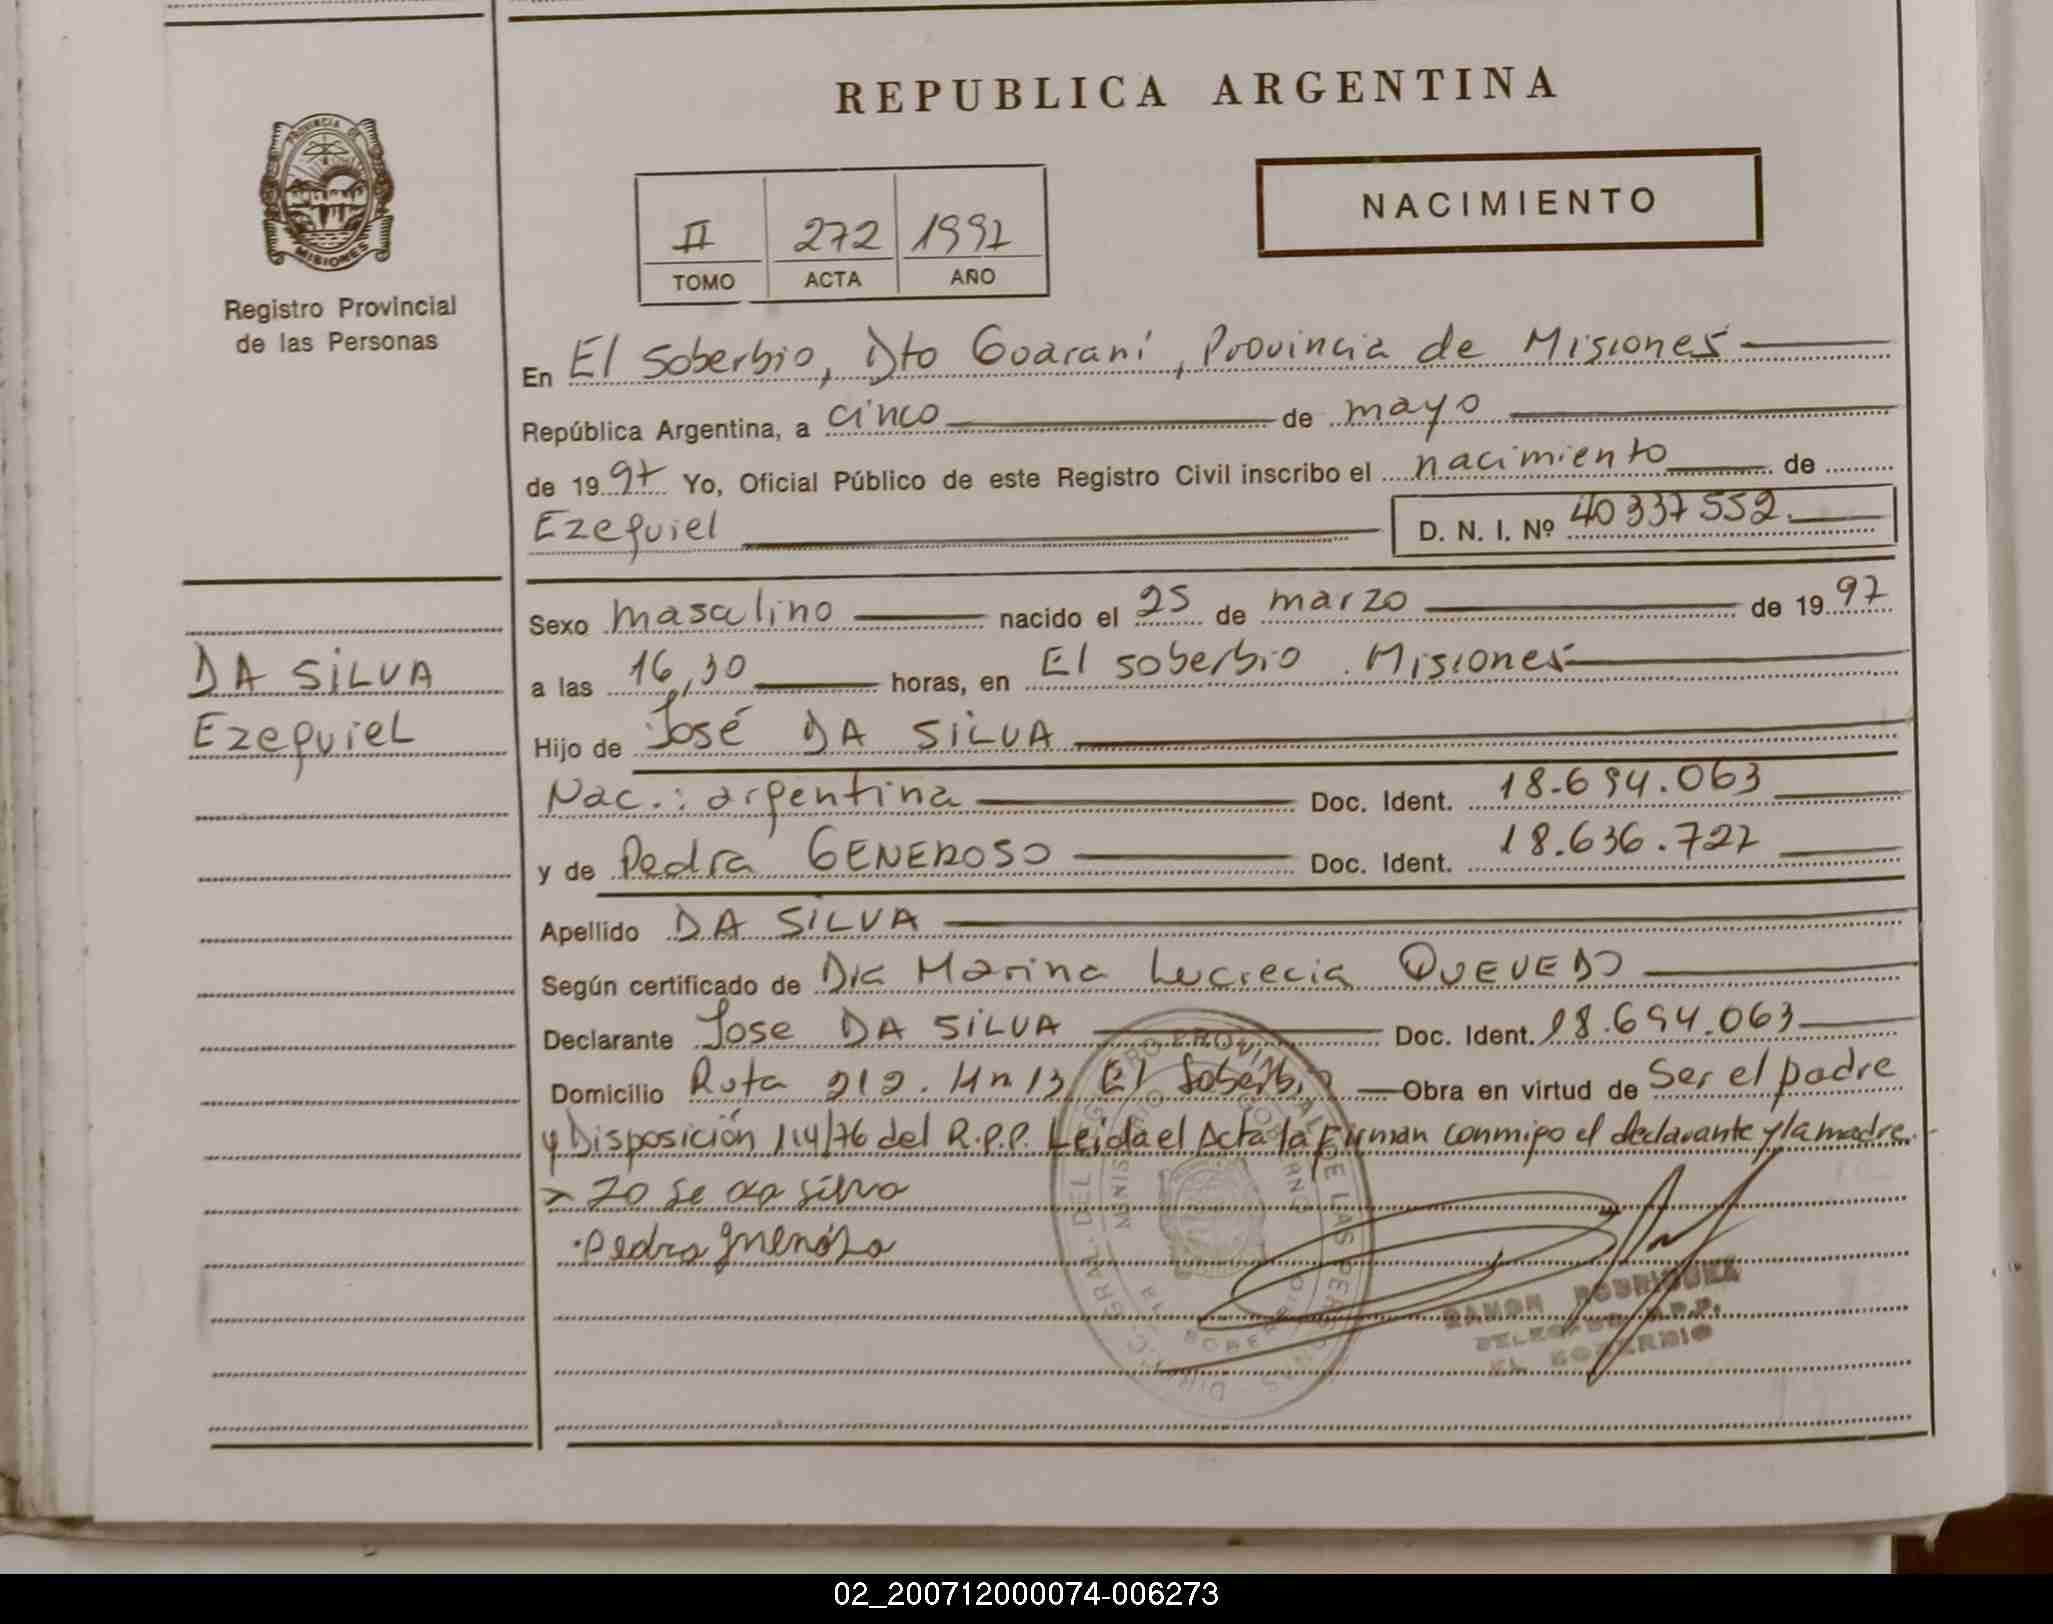 REPUBLICA ARGENTINA
NACIMIENTO
II 272 1997
TOMO ACTA AÑO
PROVINCIA DE
MISIONES
Registro Provincial
de las Personas
En El Soberbio, Dto Guaraní, Provincia de Misiones
República Argentina, a cinco de mayo
de 1997 Yo, Oficial Público de este Registro Civil inscribo el nacimiento de
Ezequiel D. N. I. Nº 40337552.
Sexo masculino nacido el 25 de marzo de 1997
DA SILVA
Ezequiel
a las 16,30 horas, en El soberbio . Misiones
Hijo de José DA SILVA
Nac.: argentina Doc. Ident. 18.694.063
y de Pedra GENEROSO Doc. Ident. 18.636.727
Apellido DA SILVA
Según certificado de Dra Marina Lucrecia QUEVEDO
Declarante Jose DA SILVA Doc. Ident. 18.694.063
Domicilio Ruta 212. Km 13 El Soberbio Obra en virtud de Ser el padre
y Disposición 114/76 del R.P.P. Leida el Acta la firman conmigo el declarante y la madre.
Jose da silva
Pedra
RAMON RODRIGUEZ
DELEGADO R.P.P.
EL SOBERBIO
02_200712000074-006273